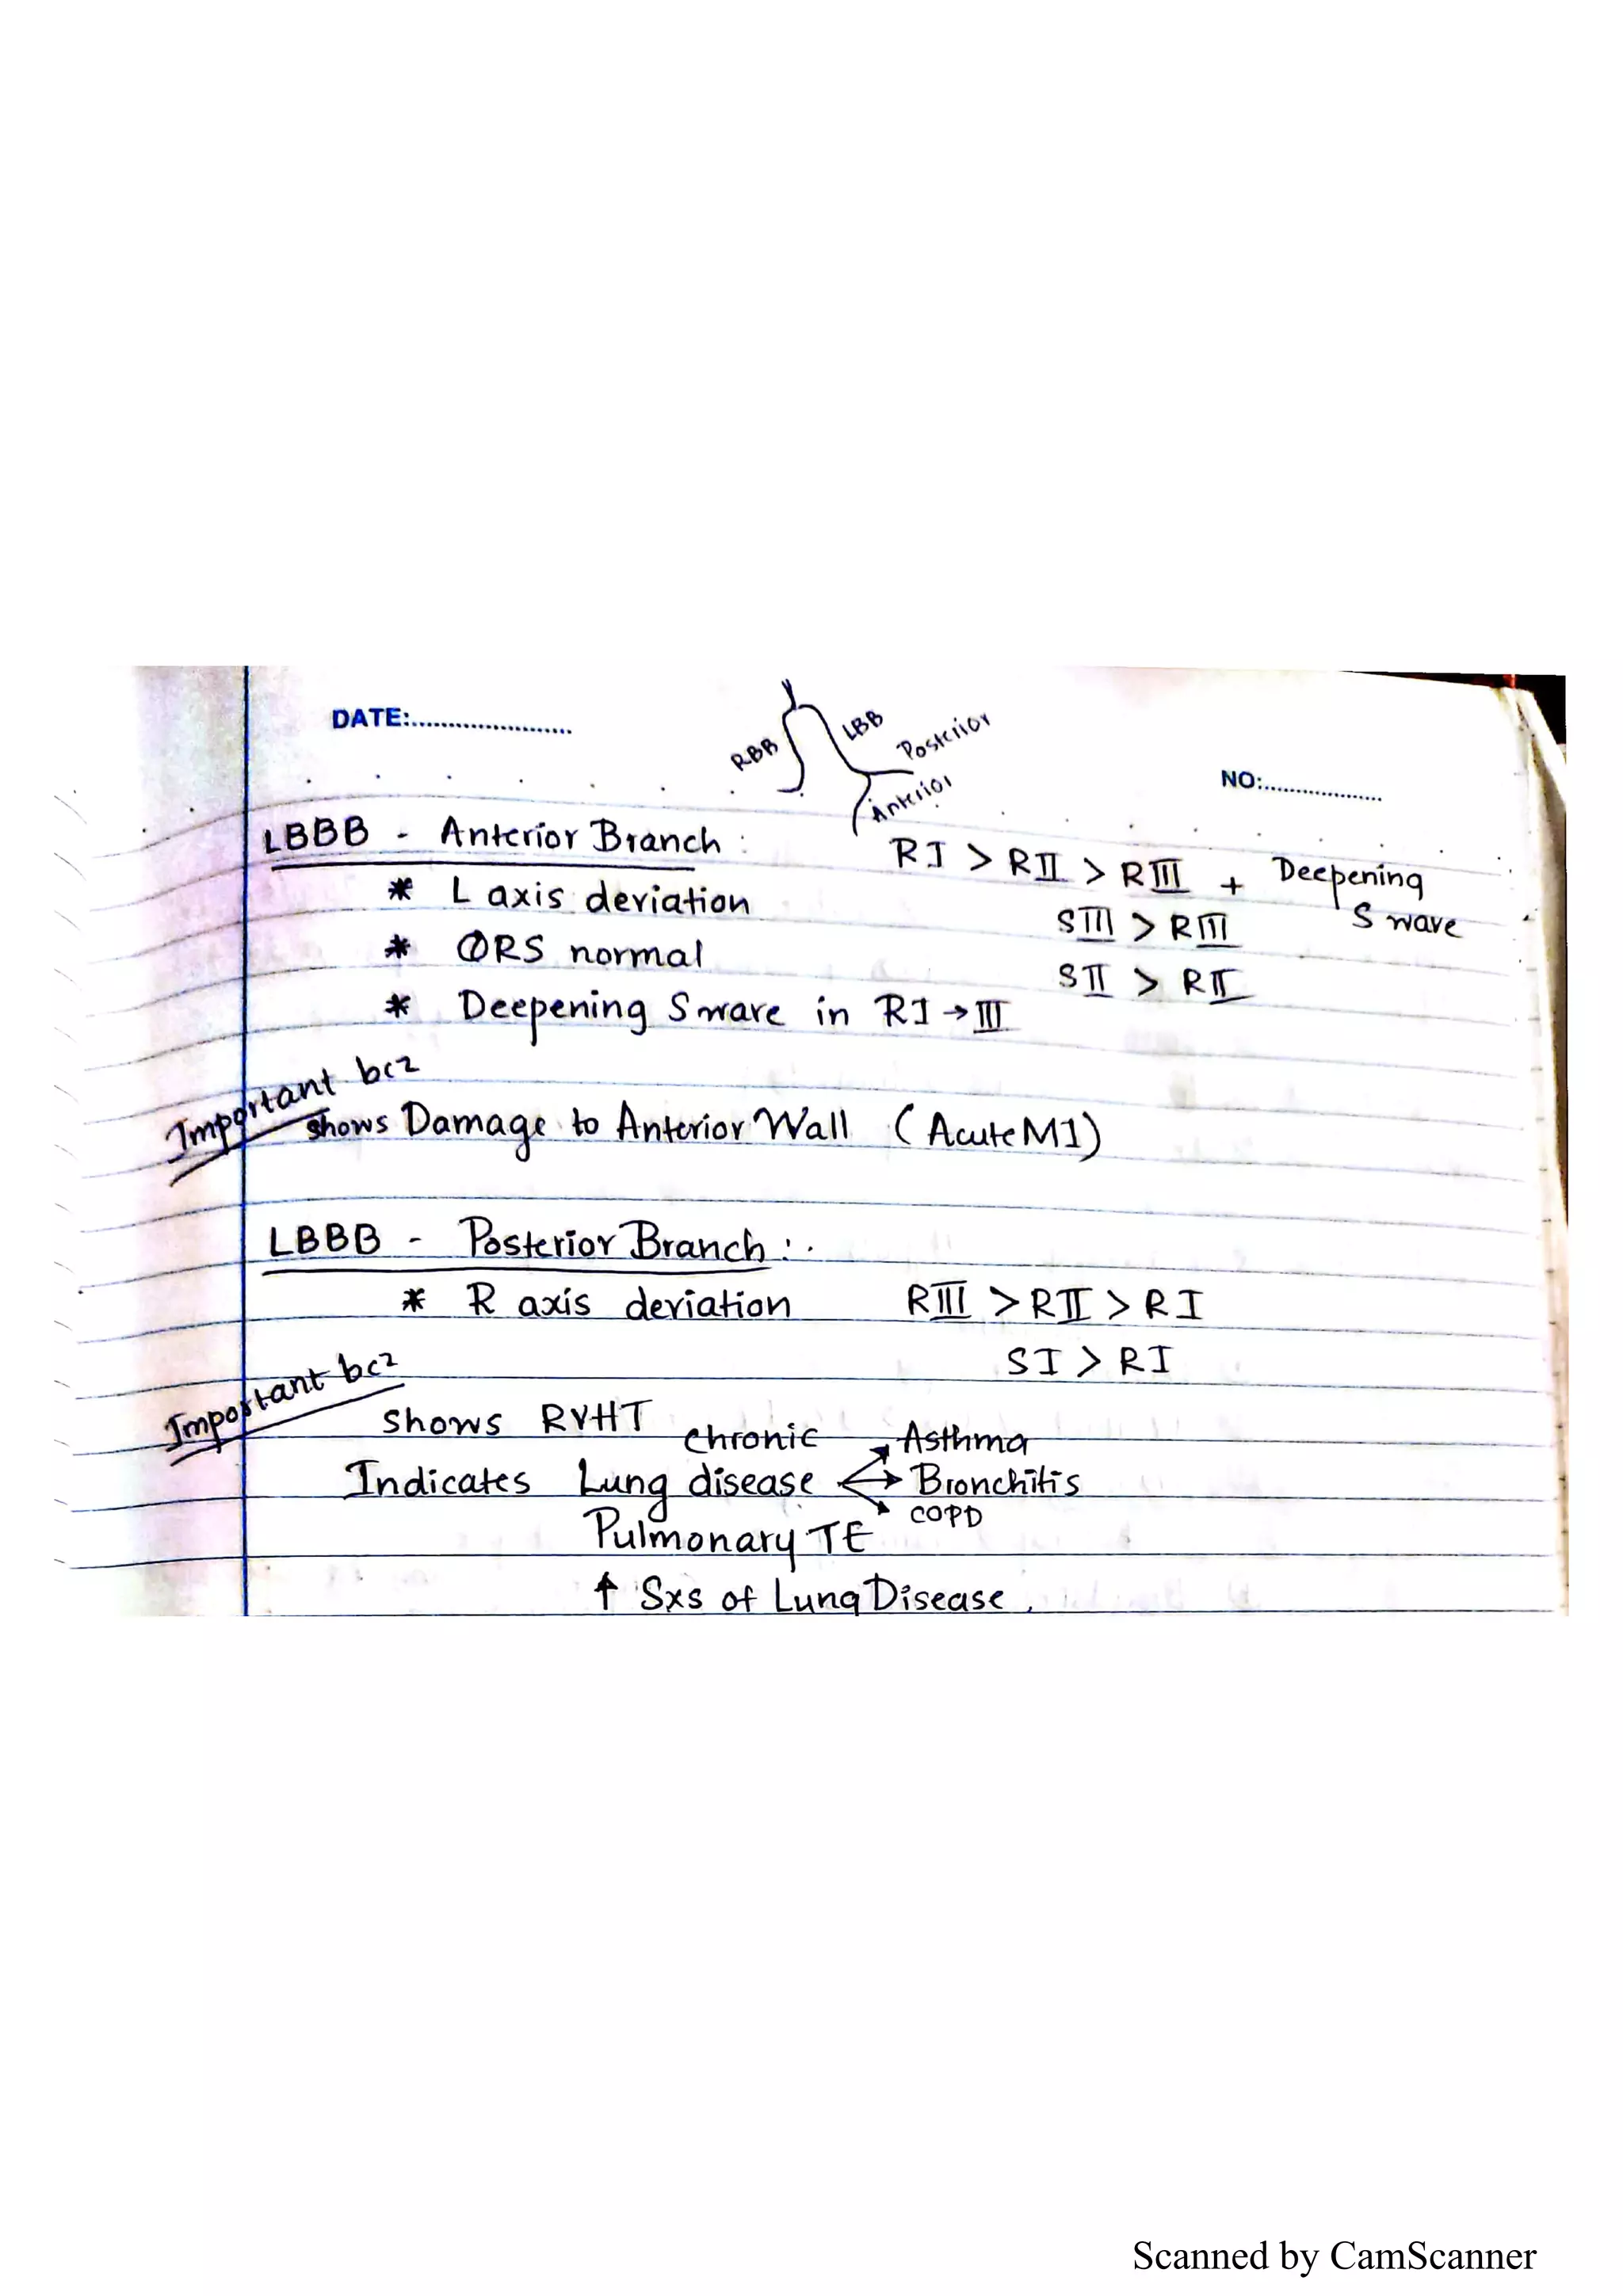 DATE:......................
RBB
LBB
Posterior
Anterior
NO:....................
LBBB - Anterior Branch :
RI > RII > RIII + Deepening S wave
* L axis deviation
SIII > RIII
* QRS normal
SII > RII
* Deepening S wave in RI → III
Important bcz
shows Damage to Anterior Wall (Acute MI)
LBBB - Posterior Branch :
* R axis deviation RIII > RII > RI
SI > RI
Important bcz
shows RVHT
Indicates chronic Lung disease → Asthma
→ Bronchitis
→ COPD
Pulmonary TE
↑ Sxs of Lung Disease.
Scanned by CamScanner